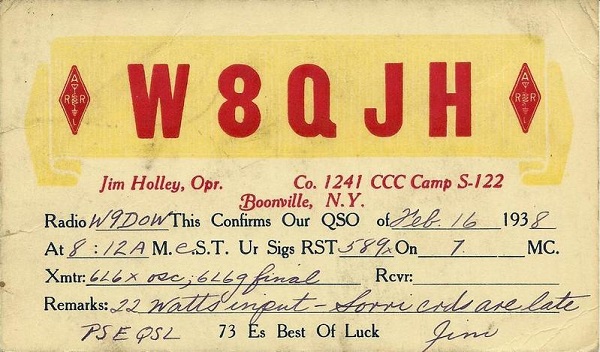 W8QJH
A R R L
A R R L
Jim Holley, Opr. Co. 1241 CCC Camp S-122
Boonville, N.Y.
Radio W9DOW This Confirms Our QSO of Feb. 16 1938
At 8:12A M. C.S.T. Ur Sigs RST 589x On 7 MC.
Xmtr: 6L6x osc; 6L6g final Rcvr:
Remarks: 22 Watts input - Sorri crds are late
PSE QSL 73 Es Best Of Luck Jim